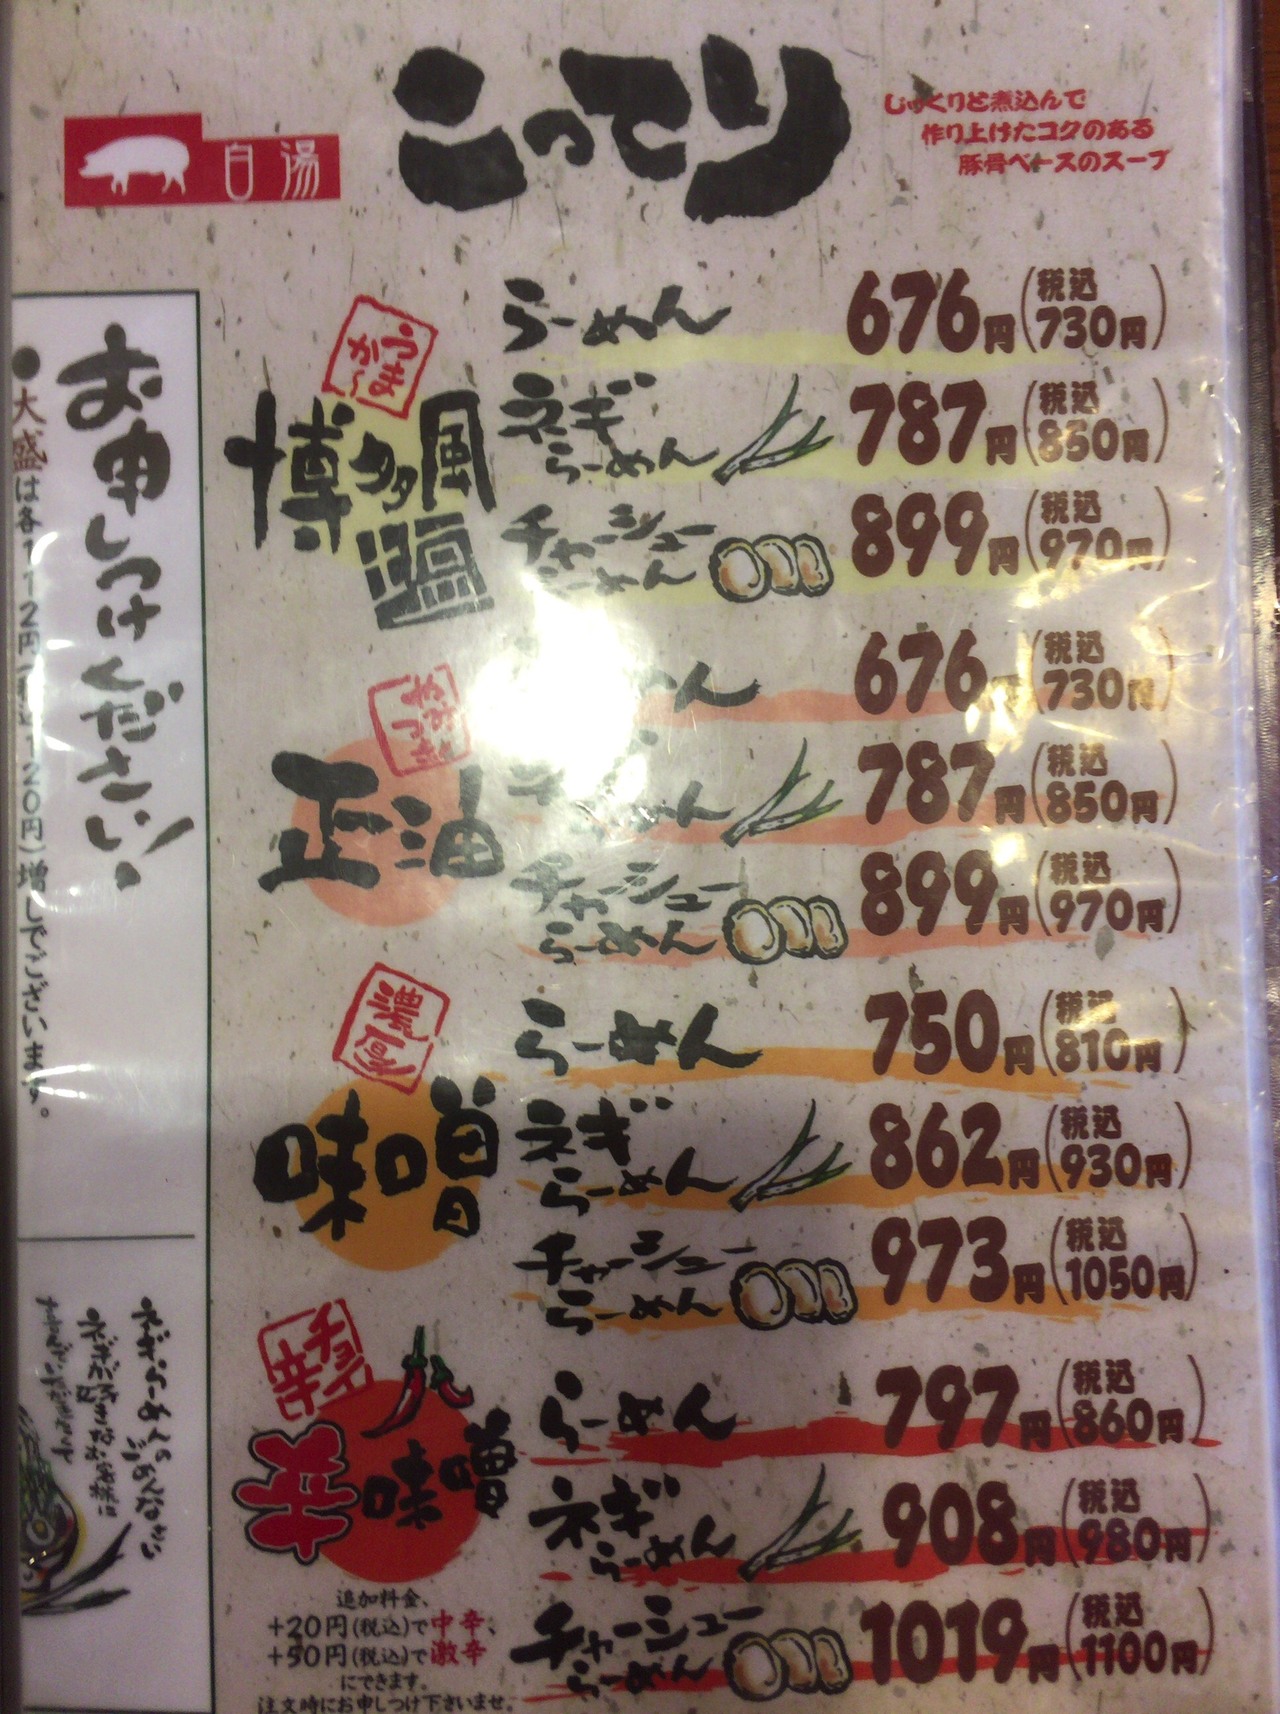 白湯
こってり
じっくりと煮込んで
作り上げたコクのある
豚骨ベースのスープ
うまか〜
博多風塩
らーめん 676円(税込730円)
ネギらーめん 787円(税込850円)
チャーシューらーめん 899円(税込970円)
正油
めん 676円(税込730円)
めん 787円(税込850円)
チャーシューらーめん 899円(税込970円)
濃厚
味噌
らーめん 750円(税込810円)
ネギらーめん 862円(税込930円)
チャーシューらーめん 973円(税込1050円)
チョイ辛
辛味噌
らーめん 797円(税込860円)
ネギらーめん 908円(税込980円)
チャーシューらーめん 1019円(税込1100円)
追加料金、
+20円(税込)で中辛、
+50円(税込)で激辛
にできます。
注文時にお申しつけ下さいませ。
お申しつけください!
●大盛は各112円(税込120円)増しでございます。
ネギらーめんの
ごめんなさい